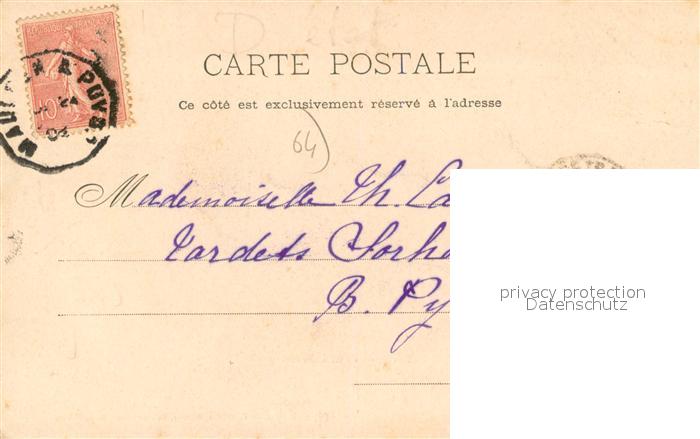 REPUBLIQUE FRANÇAISE
10
MAULEON A PUYOO
04
CARTE POSTALE
Ce côté est exclusivement réservé à l'adresse
64
Mademoiselle Th. La
Tardets Sorho
B. Py
privacy protection
Datenschutz